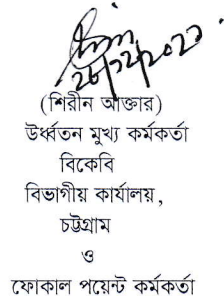 ২৮/১২/২০২১
(শিরীন আক্তার)
উর্ধ্বতন মুখ্য কর্মকর্তা
বিকেবি
বিভাগীয় কার্যালয়,
চট্টগ্রাম
ও
ফোকাল পয়েন্ট কর্মকর্তা